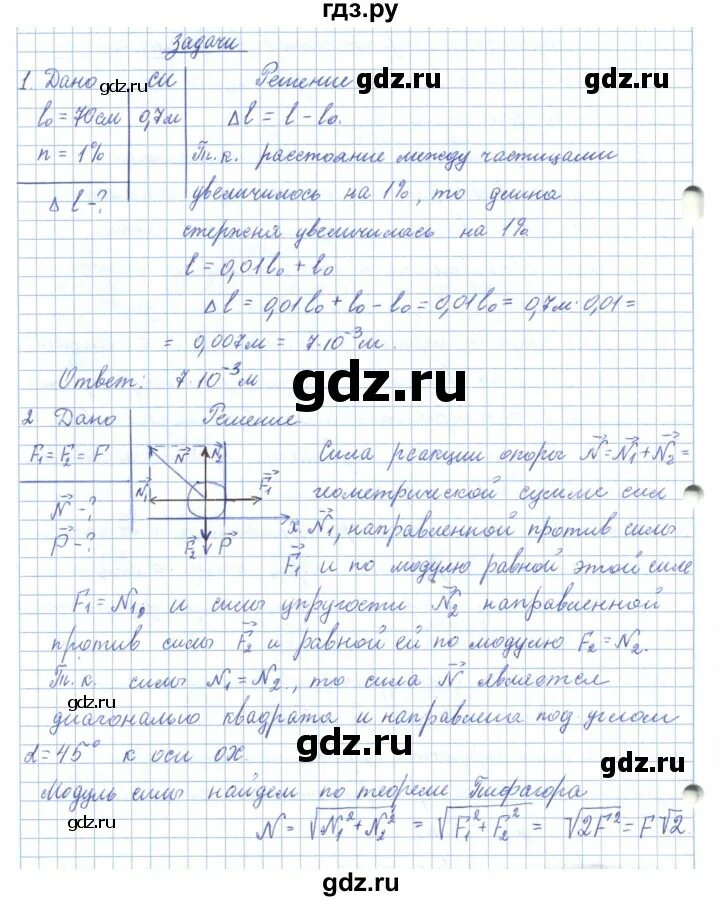 гдз.ру
Задачи
1. Дано СИ Решение
gdz.ru gdz.ru gdz.ru
l₀ = 70см 0,7м Δl = l - l₀.
n = 1% Т.к. расстояние между частицами
Δl - ? увеличилось на 1%, то длина
стержня увеличилась на 1%
l = 0,01l₀ + l₀
Δl = 0,01l₀ + l₀ - l₀ = 0,01l₀ = 0,7м · 0,01 =
= 0,007м = 7·10⁻³м.
Ответ: 7·10⁻³м
gdz.ru
2 Дано Решение
F₁ = F₂ = F
N⃗ - ?
P⃗ - ?
N⃗ N⃗₂
N⃗₁ F⃗₁
x
F⃗₂ P⃗
Сила реакции опоры N⃗ = N⃗₁ + N⃗₂ =
геометрической сумме сил
N⃗₁, направленной против силы
F⃗₁ и по модулю равной этой силе
F₁ = N₁, и силы упругости N⃗₂ направленной
против силы F⃗₂ и равной ей по модулю F₂ = N₂.
Т.к. силы N₁ = N₂, то сила N⃗ является
gdz.ru
диагональю квадрата и направлена под углом
α = 45° к оси OX.
gdz.ru gdz.ru
Модуль силы найдем по теореме Пифагора
N = √N₁² + N₂² = √F₁² + F₂² = √2F² = F√2
gdz.ru
gdz.ru